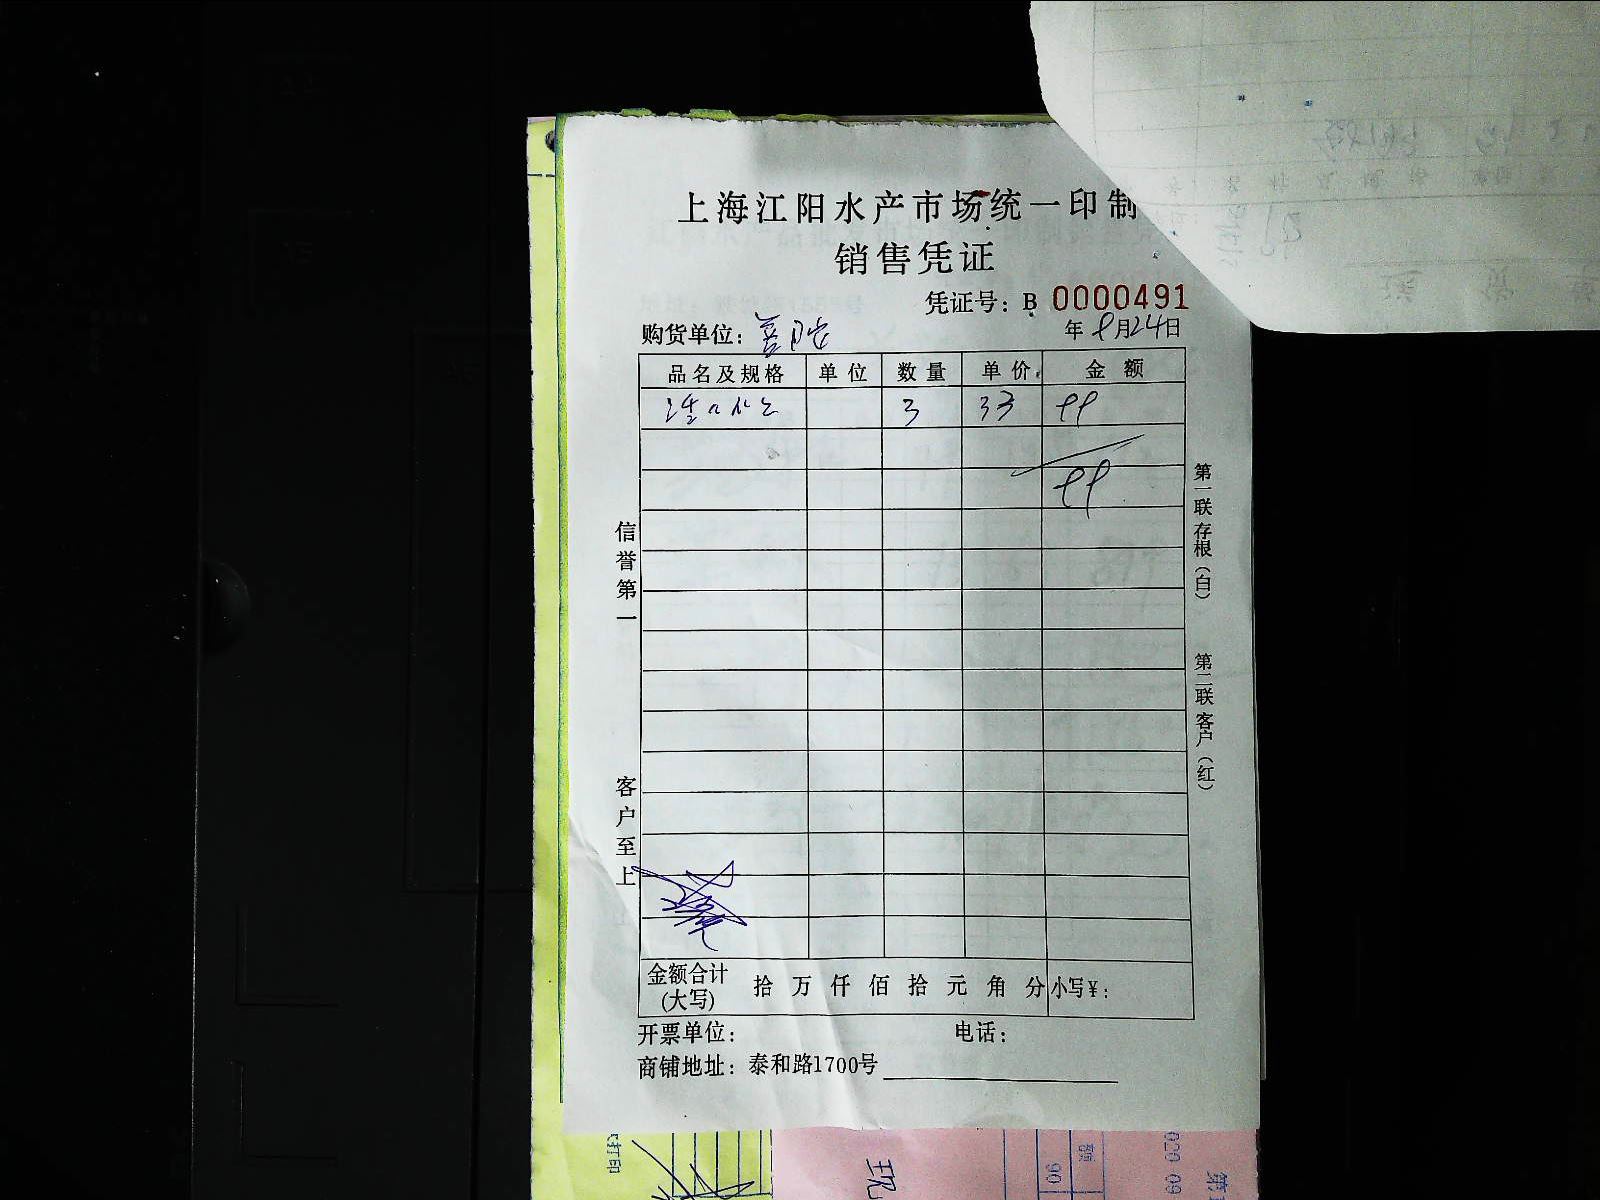 上海江阳水产市场统一印制
销售凭证
凭证号：B 0000491
购货单位：
年 9月24日
品名及规格 单位 数量 单价 金额
3 33 99
99
信誉第一
客户至上
第一联存根（白）
第二联客户（红）
金额合计（大写） 拾 万 仟 佰 拾 元 角 分 小写￥：
开票单位： 电话：
商铺地址：泰和路1700号
打印
现
90
额
020 09
第